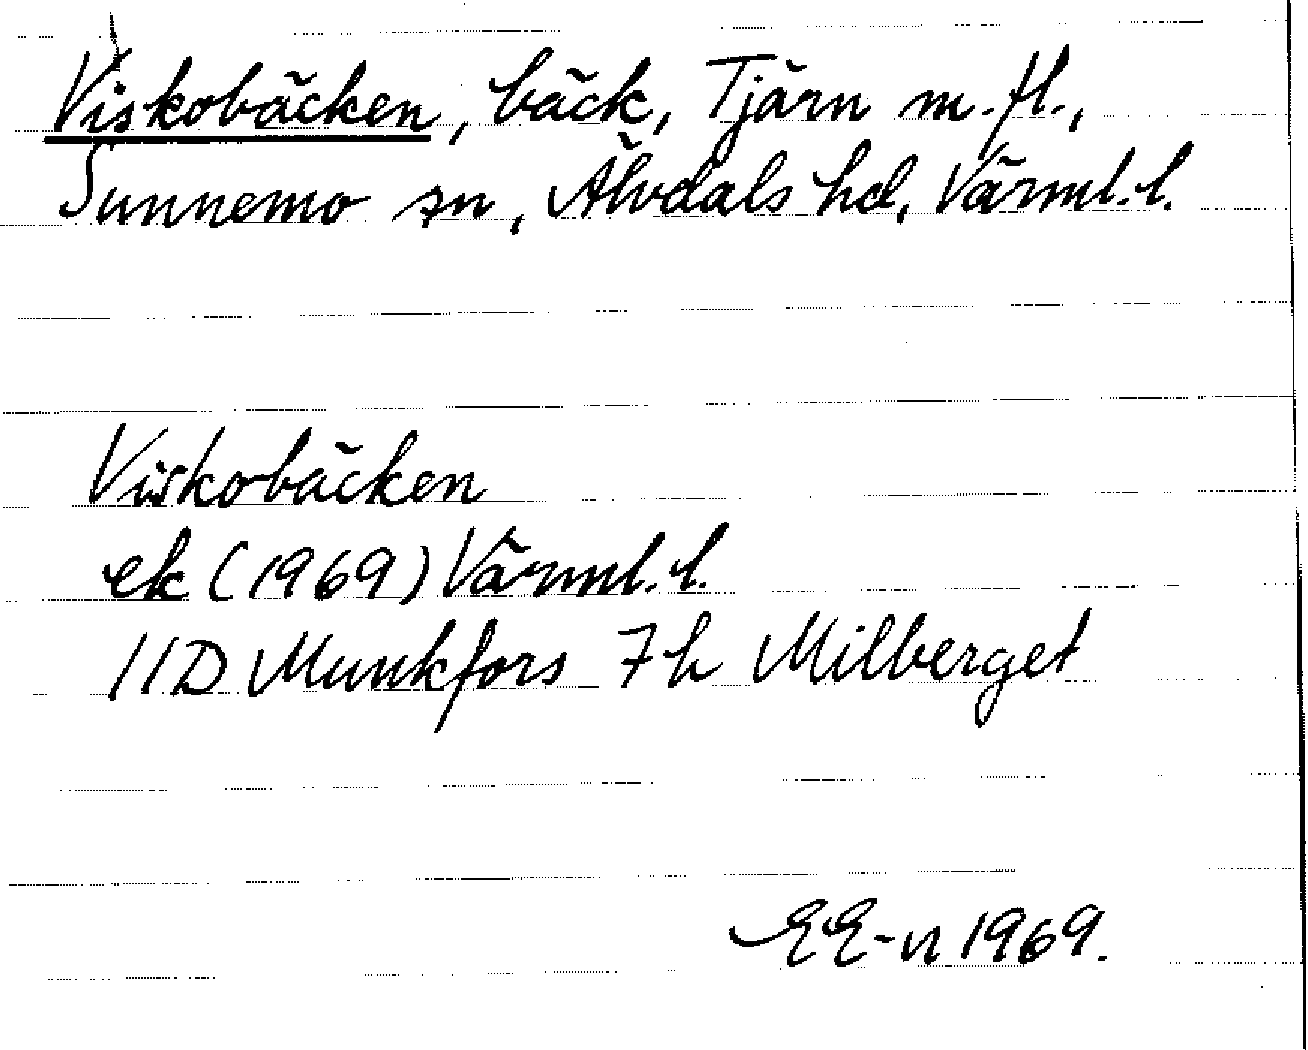 Viskobäcken, bäck, Tjärn m. fl.,
Sunnemo sn, Älvdals hd, Värml. l.
Viskobäcken
ek (1969) Värml. l.
11D Munkfors 7h Milberget
EE-n 1969.